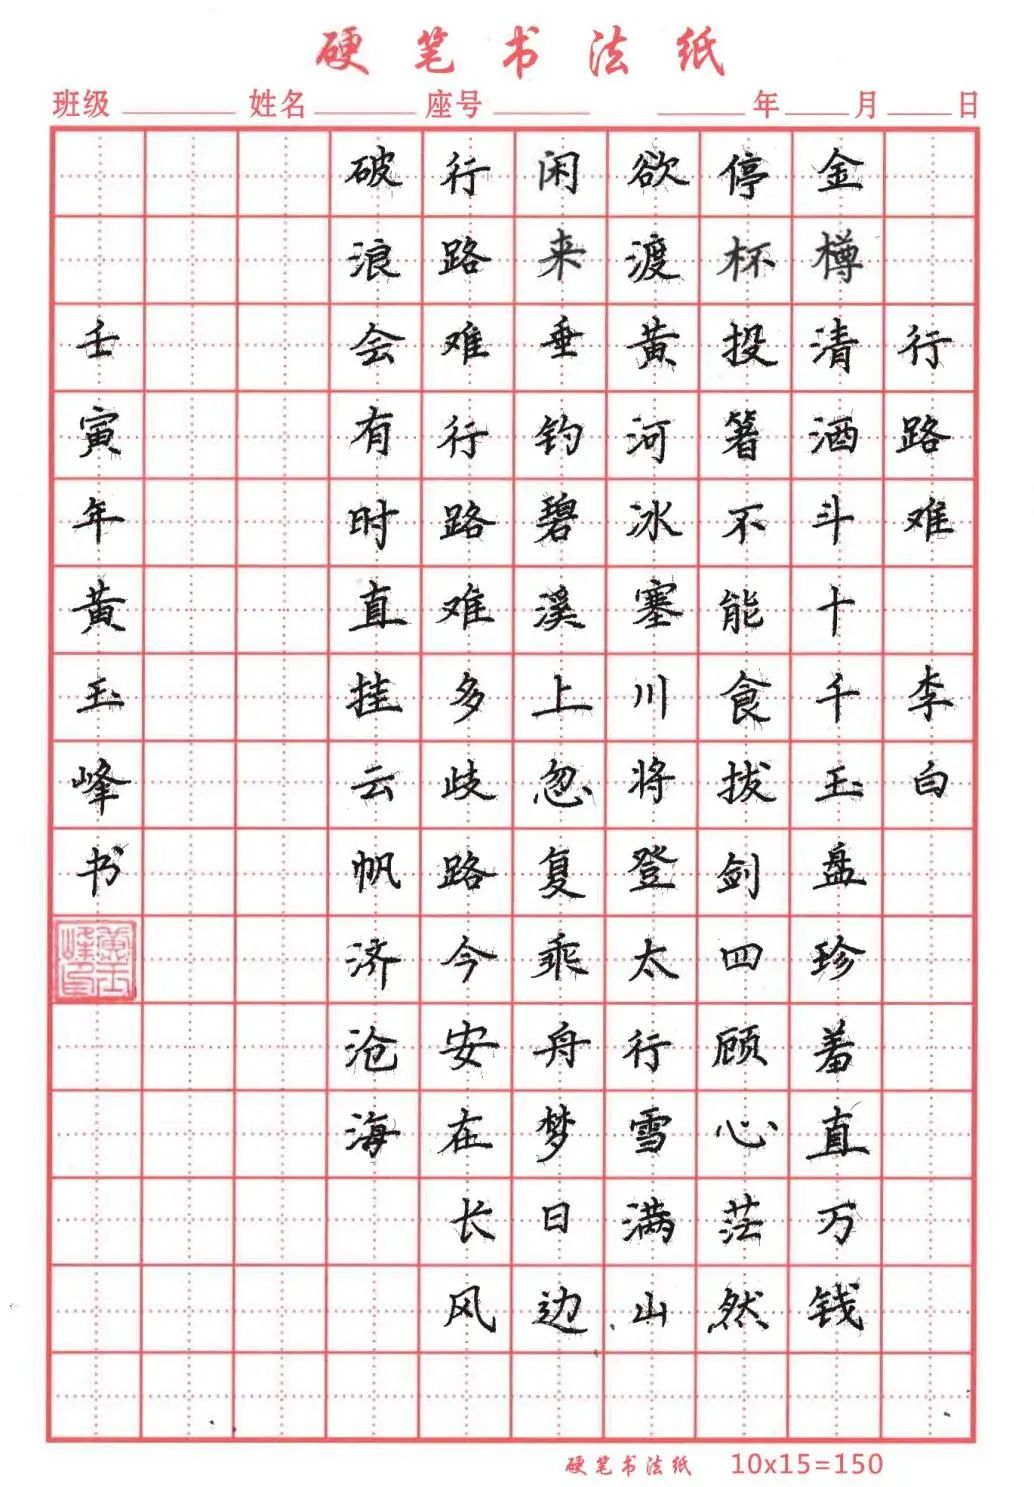 硬笔书法纸
班级 姓名 座号 年 月 日
行路难 李白
金樽清酒斗十千玉盘珍羞直万钱
停杯投箸不能食拔剑四顾心茫然
欲渡黄河冰塞川将登太行雪满山
闲来垂钓碧溪上忽复乘舟梦日边
行路难行路难多歧路今安在长风
破浪会有时直挂云帆济沧海
壬寅年黄玉峰书
黄玉峰印
硬笔书法纸 10x15=150